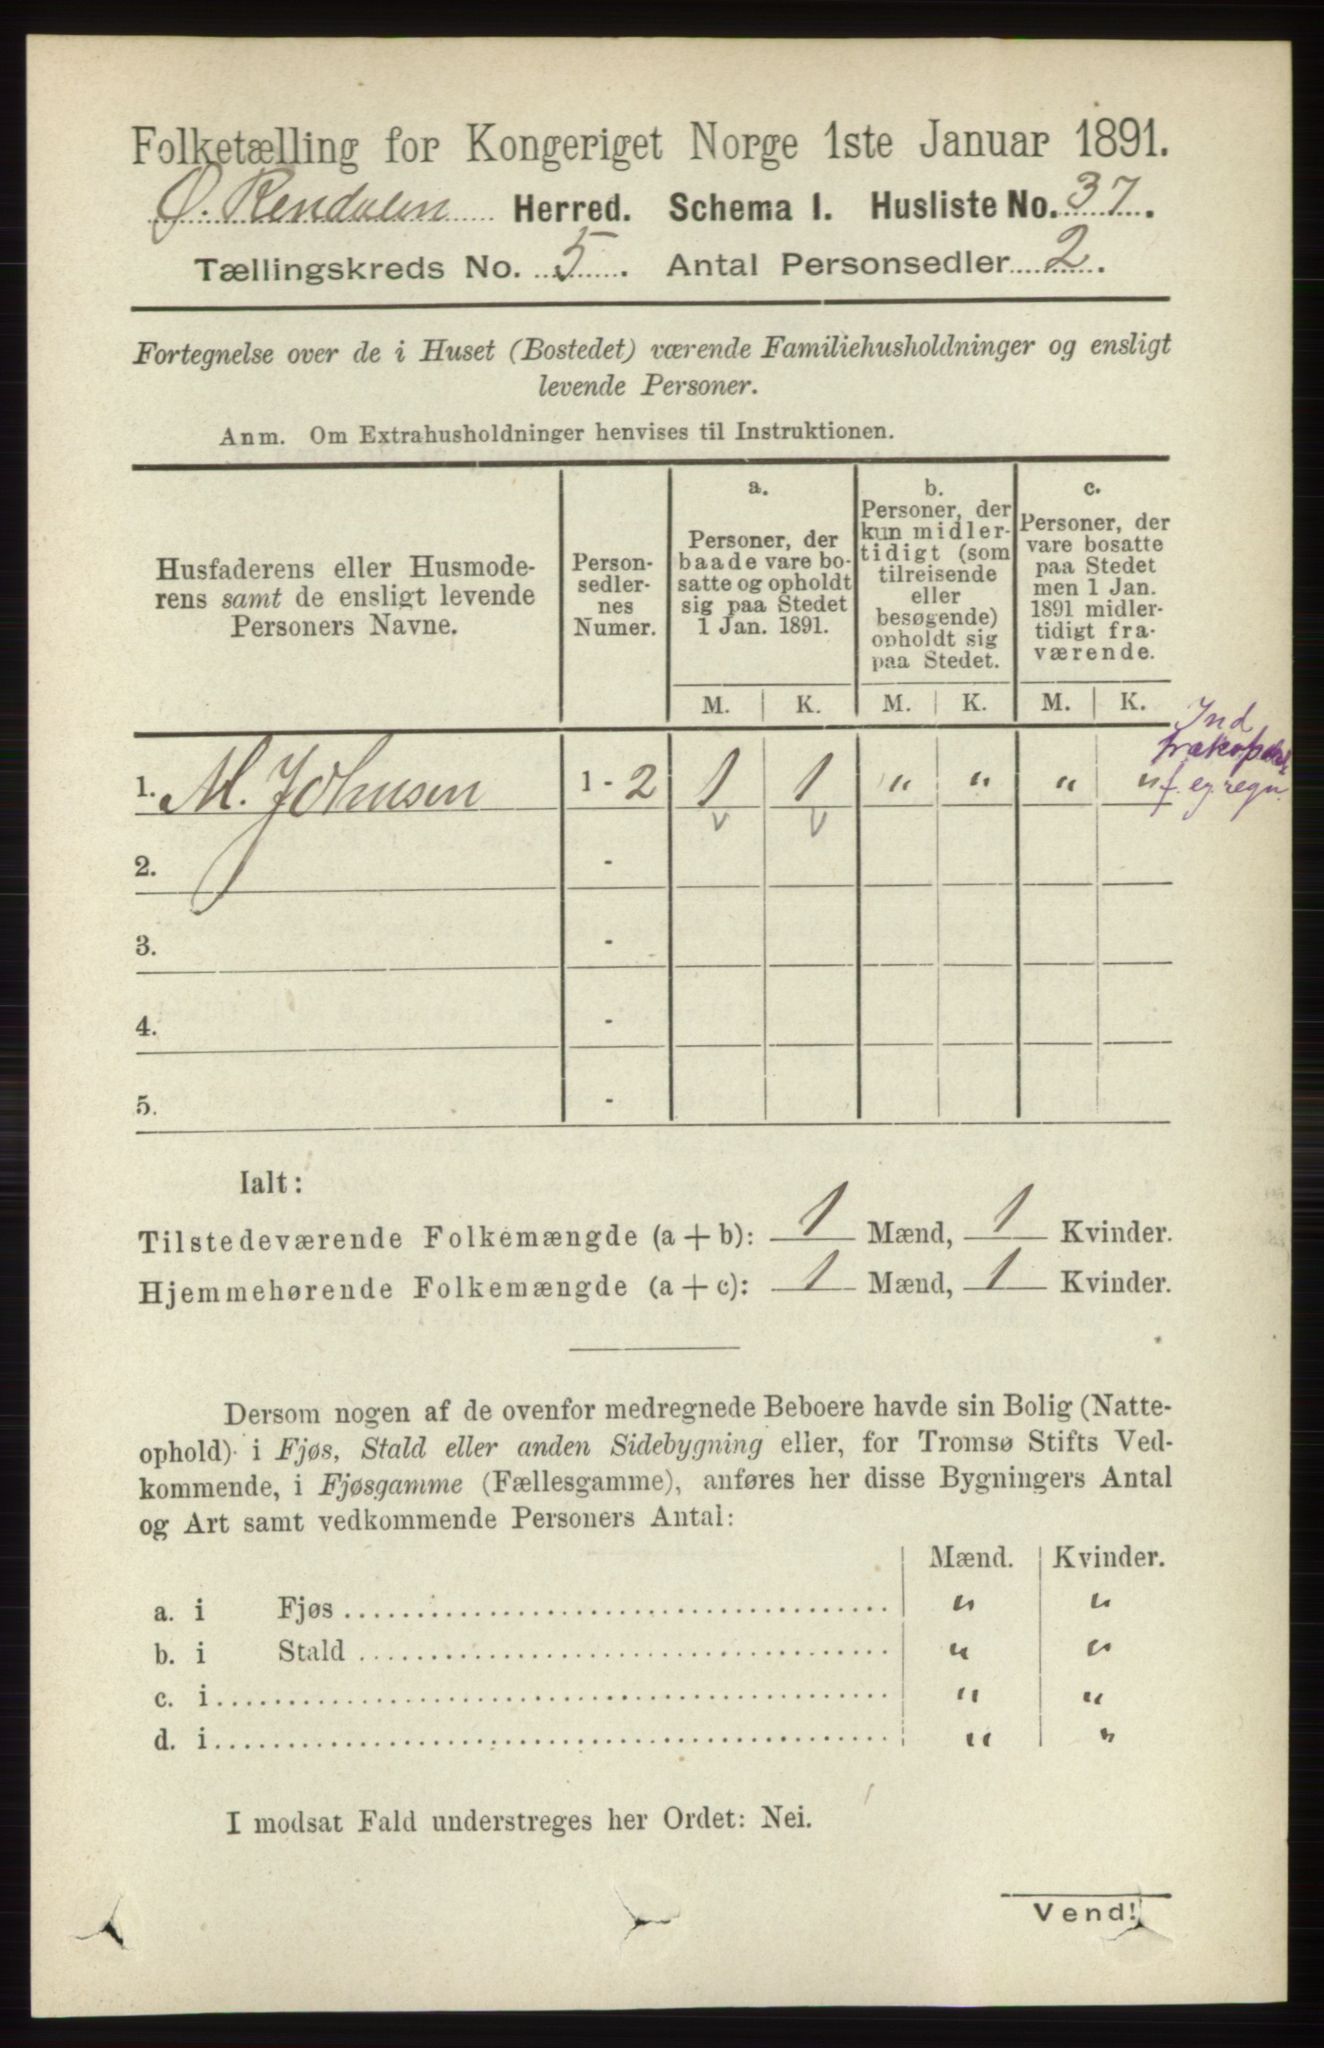 Folketælling for Kongeriget Norge 1ste Januar 1891.
Ø. Rendalen Herred. Schema I. Husliste No. 37.
Tællingskreds No. 5. Antal Personsedler 2.
Fortegnelse over de i Huset (Bostedet) værende Familiehusholdninger og ensligt
levende Personer.
Anm. Om Extrahusholdninger henvises til Instruktionen.
Husfaderens eller Husmode-
rens samt de ensligt levende
Personers Navne.
Person-
sedler-
nes
Numer.
a.
Personer, der
baade vare bo-
satte og opholdt
sig paa Stedet
1 Jan. 1891.
b.
Personer, der
kun midler-
tidigt (som
tilreisende
eller
besøgende)
opholdt sig
paa Stedet.
c.
Personer, der
vare bosatte
paa Stedet
men 1 Jan.
1891 midler-
tidigt fra-
værende.
M. K. M. K. M. K.
Ind
f. eg. regn.
1. M. Johnsen 1 - 2 1 1 " " " "
2. -
3. -
4. -
5. -
Ialt:
Tilstedeværende Folkemængde (a + b): 1 Mænd, 1 Kvinder.
Hjemmehørende Folkemængde (a + c): 1 Mænd, 1 Kvinder.
Dersom nogen af de ovenfor medregnede Beboere havde sin Bolig (Natte-
ophold) i Fjøs, Stald eller anden Sidebygning eller, for Tromsø Stifts Ved-
kommende, i Fjøsgamme (Fællesgamme), anføres her disse Bygningers Antal
og Art samt vedkommende Personers Antal:
Mænd. Kvinder.
a. i Fjøs " "
b. i Stald " "
c. i " "
d. i " "
I modsat Fald understreges her Ordet: Nei.
Vend!